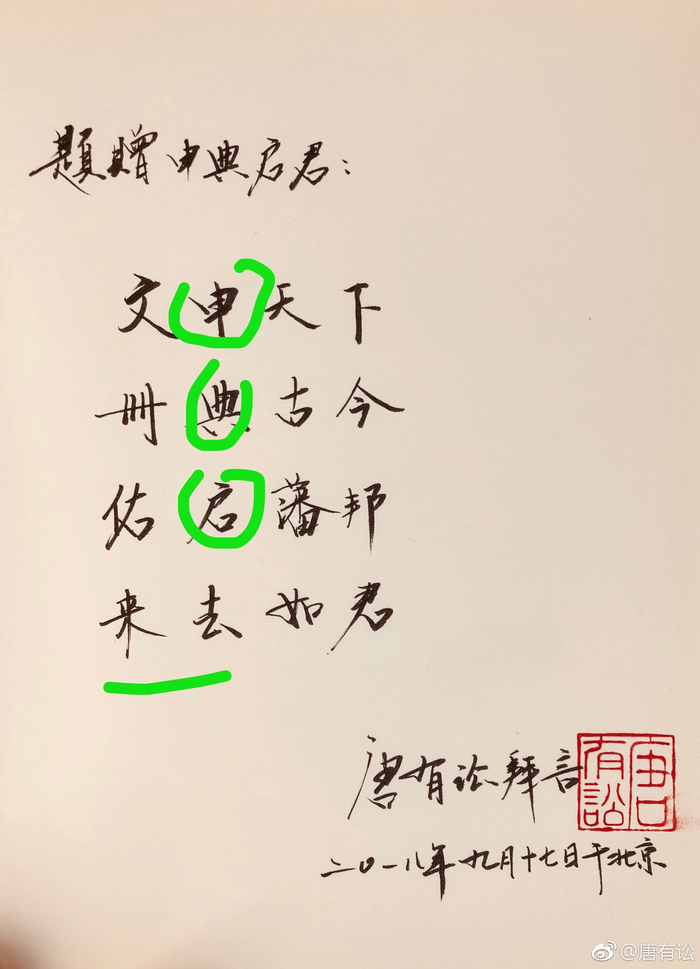 题赠申典启君：
文申天下
册典古今
佑启藩邦
来去如君
唐有讼拜言
唐有訟
二〇一八年九月十七日于北京
@唐有讼